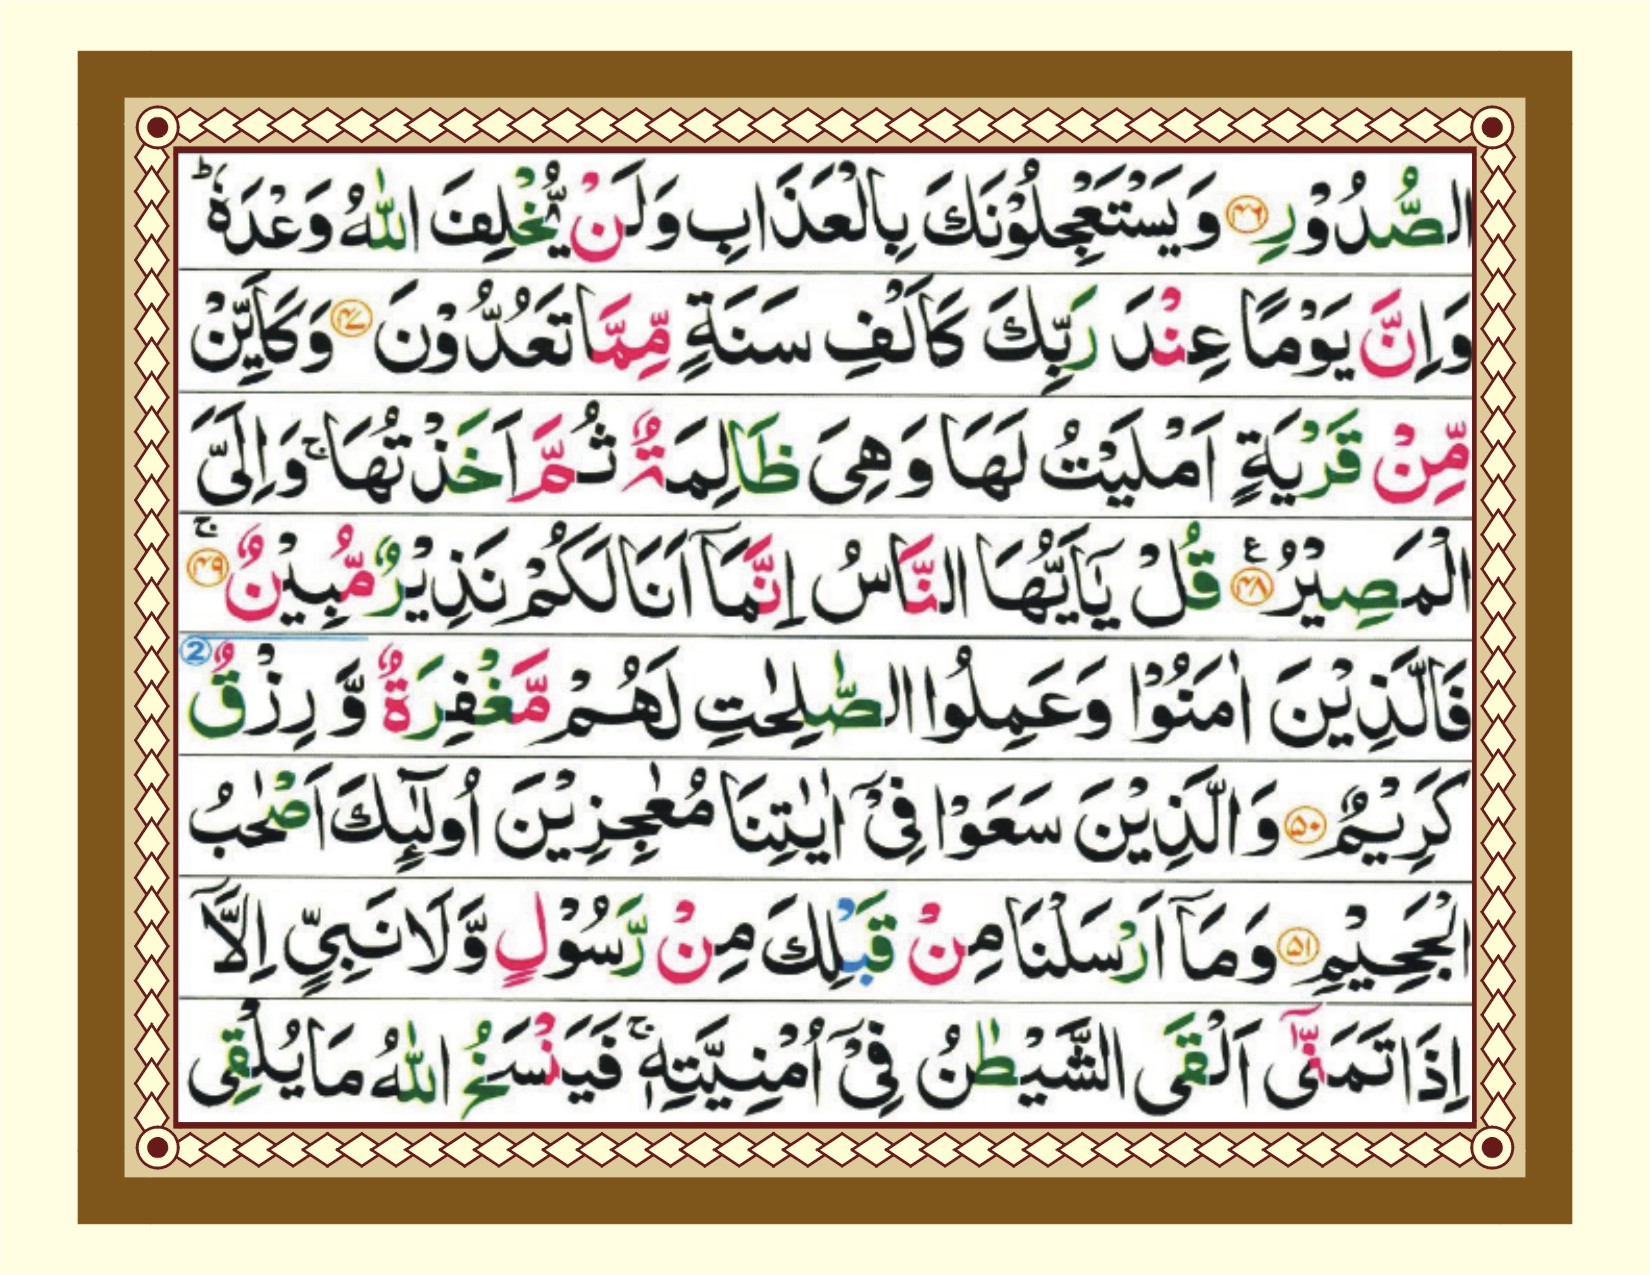 الصُّدُوْرِ ﴿۴۶﴾ وَيَسْتَعْجِلُوْنَكَ بِالْعَذَابِ وَلَنْ يُّخْلِفَ اللّٰهُ وَعْدَهٗ ؕ
وَاِنَّ يَوْمًا عِنْدَ رَبِّكَ كَاَلْفِ سَنَةٍ مِّمَّا تَعُدُّوْنَ ﴿۴۷﴾ وَكَاَيِّنْ
مِّنْ قَرْيَةٍ اَمْلَيْتُ لَهَا وَهِىَ ظَالِمَةٌ ثُمَّ اَخَذْتُهَا ۚ وَاِلَىَّ
الْمَصِيْرُ ﴿۴۸﴾ ع قُلْ يٰۤاَيُّهَا النَّاسُ اِنَّمَاۤ اَنَا لَكُمْ نَذِيْرٌ مُّبِيْنٌ ۚ ﴿۴۹﴾
فَالَّذِيْنَ اٰمَنُوْا وَعَمِلُوا الصّٰلِحٰتِ لَهُمْ مَّغْفِرَةٌ وَّ رِزْقٌ 2
كَرِيْمٌ ﴿۵۰﴾ وَالَّذِيْنَ سَعَوْا فِىْۤ اٰيٰتِنَا مُعٰجِزِيْنَ اُولٰٓئِكَ اَصْحٰبُ
الْجَحِيْمِ ﴿۵۱﴾ وَمَاۤ اَرْسَلْنَا مِنْ قَبْلِكَ مِنْ رَّسُوْلٍ وَّلَا نَبِىٍّ اِلَّاۤ
اِذَا تَمَنّٰىۤ اَلْقَى الشَّيْطٰنُ فِىْۤ اُمْنِيَّتِهٖ ۚ فَيَنْسَخُ اللّٰهُ مَا يُلْقِى